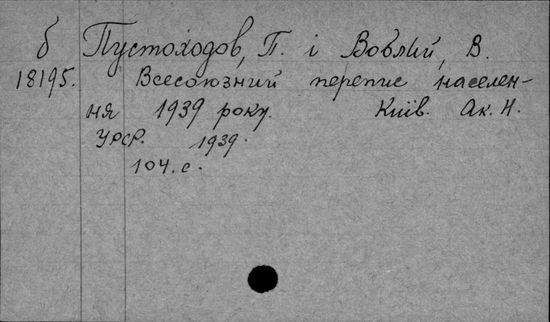 б Пустоходов, П. і Воблий, В.
18195. Всесоюзний перепис населен-
ня 1939 року. Київ. Ак. Н.
УРСР. 1939.
104. с.